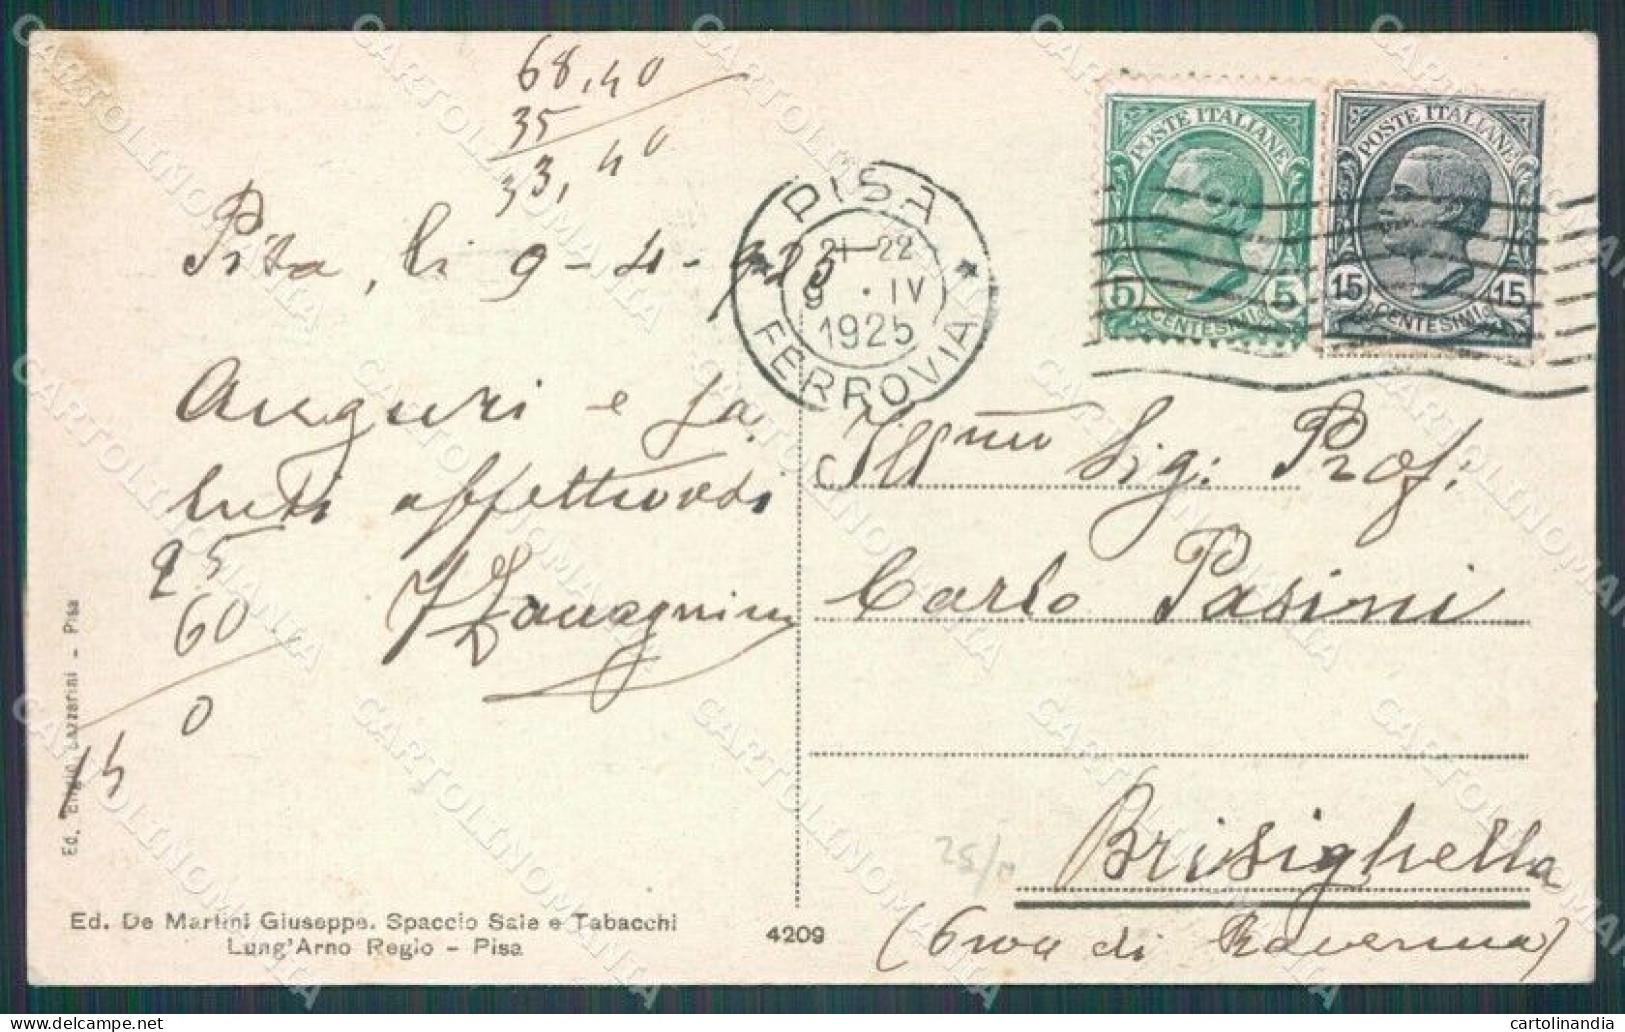 68,40
35
33,40
Pisa, li 9-4-925
Auguri e sa
luti affettuosi
25
60
0
15
PISA
21-22
9 . IV
1925
FERROVIA
POSTE ITALIANE
5 5
CENTESIMI
POSTE ITALIANE
15 15
CENTESIMI
Ill mo Sig: Prof:
Carlo Pasini
Brisighella
(Prov di Ravenna)
25/
Ed. Lazzarini - Pisa
Ed. De Martini Giuseppe. Spaccio Sale e Tabacchi
Lung'Arno Regio - Pisa
4209
CARTOLINOMANIA
cartolinandia